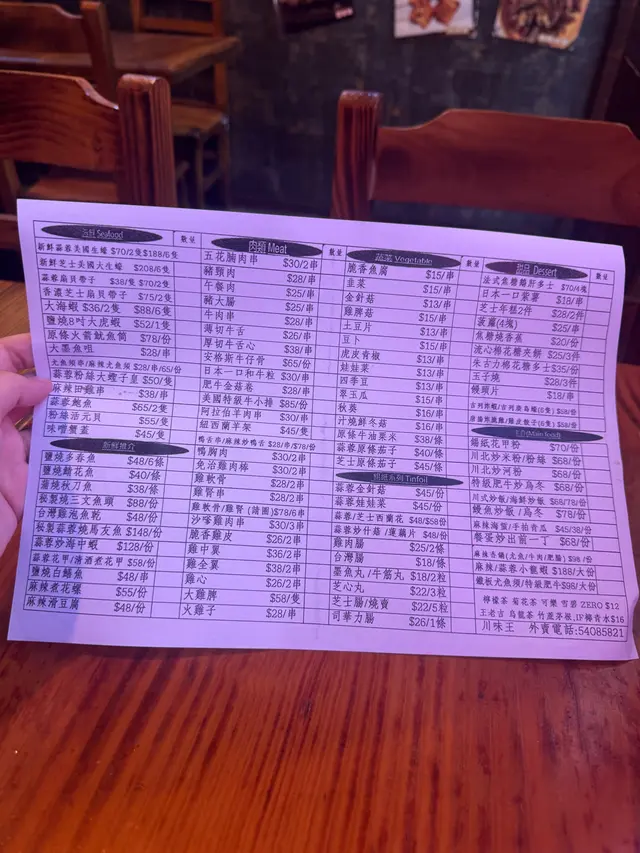 海鮮 Seafood 數量
新鮮蒜蓉美國生蠔 $70/2隻$188/6隻
新鮮芝士美國大生蠔 $208/6隻
蒜蓉扇貝帶子 $38/隻 $70/2隻
香濃芝士扇貝帶子 $75/2隻
大海蝦 $36/2隻 $88/6隻
鹽燒8吋大虎蝦 $52/1隻
原條火箭魷魚筒 $78/份
大墨魚咀 $28/串
尤魚須串/麻辣尤魚须 $28/串/65/份
蒜蓉粉絲大蟶子皇 $50/隻
麻辣田雞串 $38/串
蒜蓉鮑魚 $65/2隻
粉絲活元貝 $55/隻
味噌蟹蓋 $45/隻
新鮮推介
鹽燒多春魚 $48/6條
鹽燒鯖花魚 $40/條
蒲燒秋刀魚 $38/條
秘製燒三文魚頭 $88/份
台灣雞泡魚乾 $48/份
秘製蒜蓉燒馬友魚 $148/份
蒜蓉炒海中蝦 $128/份
蒜蓉花甲/清酒煮花甲 $58/份
鹽燒白鱔魚 $48/串
麻辣煮花螺 $55/份
麻辣滑豆腐 $48/份
肉類 Meat 數量
五花腩肉串 $30/2串
豬頸肉 $28/串
午餐肉 $25/串
豬大腸 $25/串
牛肉串 $28/串
薄切牛舌 $26/串
厚切牛舌心 $38/串
安格斯牛仔骨 $65/份
日本一口和牛粒 $30/串
肥牛金菇卷 $28/串
美國特級牛小排 $85/份
阿拉伯羊肉串 $30/串
紐西蘭羊架 $45/隻
鴨舌串/麻辣炒鴨舌 $28/串/$78/份
鴨胸肉 $30/2串
免治雞肉棒 $30/2串
雞軟骨 $28/2串
雞腎串 $28/2串
雞軟骨/雞腎(蒜圈)$78/6串
沙嗲雞肉串 $30/3串
脆香雞皮 $26/2串
雞中翼 $36/2串
雞全翼 $38/2串
雞心 $26/2串
大雞髀 $58/隻
火雞子 $28/串
蔬菜 Vegetable 數量
脆香魚腐 $15/串
韭菜 $15/串
金針菇 $13/串
雞脾菇 $15/串
土豆片 $13/串
豆卜 $15/串
虎皮青椒 $13/串
娃娃菜 $13/串
四季豆 $13/串
翠玉瓜 $15/串
秋葵 $16/串
汁燒鮮冬菇 $15/串
原條牛油粟米 $38/條
蒜蓉原條茄子 $40/條
芝士原條茄子 $45/條
錫紙系列 Tinfoil
蒜蓉金針菇 $45/份
蒜蓉娃娃菜 $45/份
蒜蓉/芝士西蘭花 $48/$58/份
蒜蓉炒什菇/蓮藕片 $48/份
雞肉腸 $25/2條
台灣腸 $18/條
墨魚丸/牛筋丸 $18/2粒
芝心丸 $22/3粒
芝士腸/燒賣 $22/5粒
司華力腸 $26/1條
甜品 Dessert 數量
法式焦糖鵝肝多士 $70/8塊
日本一口紫薯 $18/串
芝士年糕2件 $28/2件
菠蘿(4塊) $25/串
焦糖燒香蕉 $20/份
流心棉花糖夾餅 $25/3件
朱古力棉花糖多士$35/份
玉子燒 $28/3件
饅頭片 $18/串
吉列炸蝦/吉列廣島蠔(5隻) $58/份
主食(Main food)
錫紙花甲粉 $70/份
川北炒米粉/粉絲 $68/份
川北炒河粉 $68/份
特級肥牛炒烏冬 $68/份
川式炒飯/海鮮炒飯 $68/78/份
鰻魚炒飯/烏冬 $78/份
麻辣海蜇/手拍青瓜 $45/38/份
餐蛋炒出前一丁 $68/份
麻辣香鍋(尤魚/牛肉/肥腸) $98/份
麻辣/蒜蓉小龍蝦 $188/大份
鐵板尤魚须/特級肥牛$98/大份
檸檬茶 菊花茶 可樂 雪碧 ZERO $12
王老吉 烏龍茶 竹蔗茅根,IF椰青水$16
川味王 外賣電話:54085821